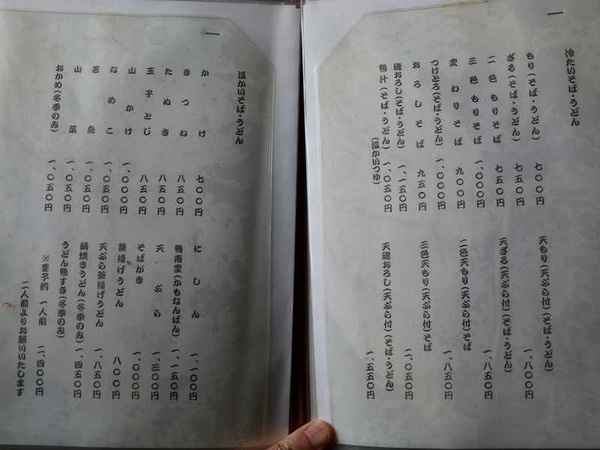 冷たいそば・うどん
もり(そば・うどん) 七〇〇円
ざる(そば・うどん) 七五〇円
二色もりそば 七五〇円
三色もりそば 一、〇〇〇円
変わりそば 九〇〇円
つけとろ(そば・うどん) 一、〇〇〇円
おろしそば 九五〇円
磯おろし(そば・うどん) 一、一五〇円
鴨汁(そば・うどん)(温かいつゆ) 一、〇五〇円
天もり(天ぷら付)(そば・うどん) 一、八〇〇円
天ざる(天ぷら付)(そば・うどん) 一、八五〇円
二色天もり(天ぷら付)そば 一、八五〇円
三色天もり(天ぷら付)そば 二、〇五〇円
天磯おろし(天ぷら付)(そば・うどん) 一、五五〇円
温かいそば・うどん
かけ 七〇〇円
きつね 八五〇円
たぬき 八五〇円
玉子とじ 八五〇円
山かけ 一、〇〇〇円
なめこ 一、〇五〇円
若鳥 一、〇五〇円
山菜 一、〇五〇円
おかめ(冬季のみ) 一、〇五〇円
にしん 一、一〇〇円
鴨南蛮(かもなんばん) 一、一五〇円
天ぷら 一、三〇〇円
そばがき 一、〇〇〇円
釜揚げうどん 八〇〇円
天ぷら釜揚げうどん 一、八五〇円
鍋焼きうどん(冬季のみ) 一、四五〇円
うどん鴨すき(冬季のみ)
※要予約 一人前 二、四〇〇円
二人前よりお願いいたします